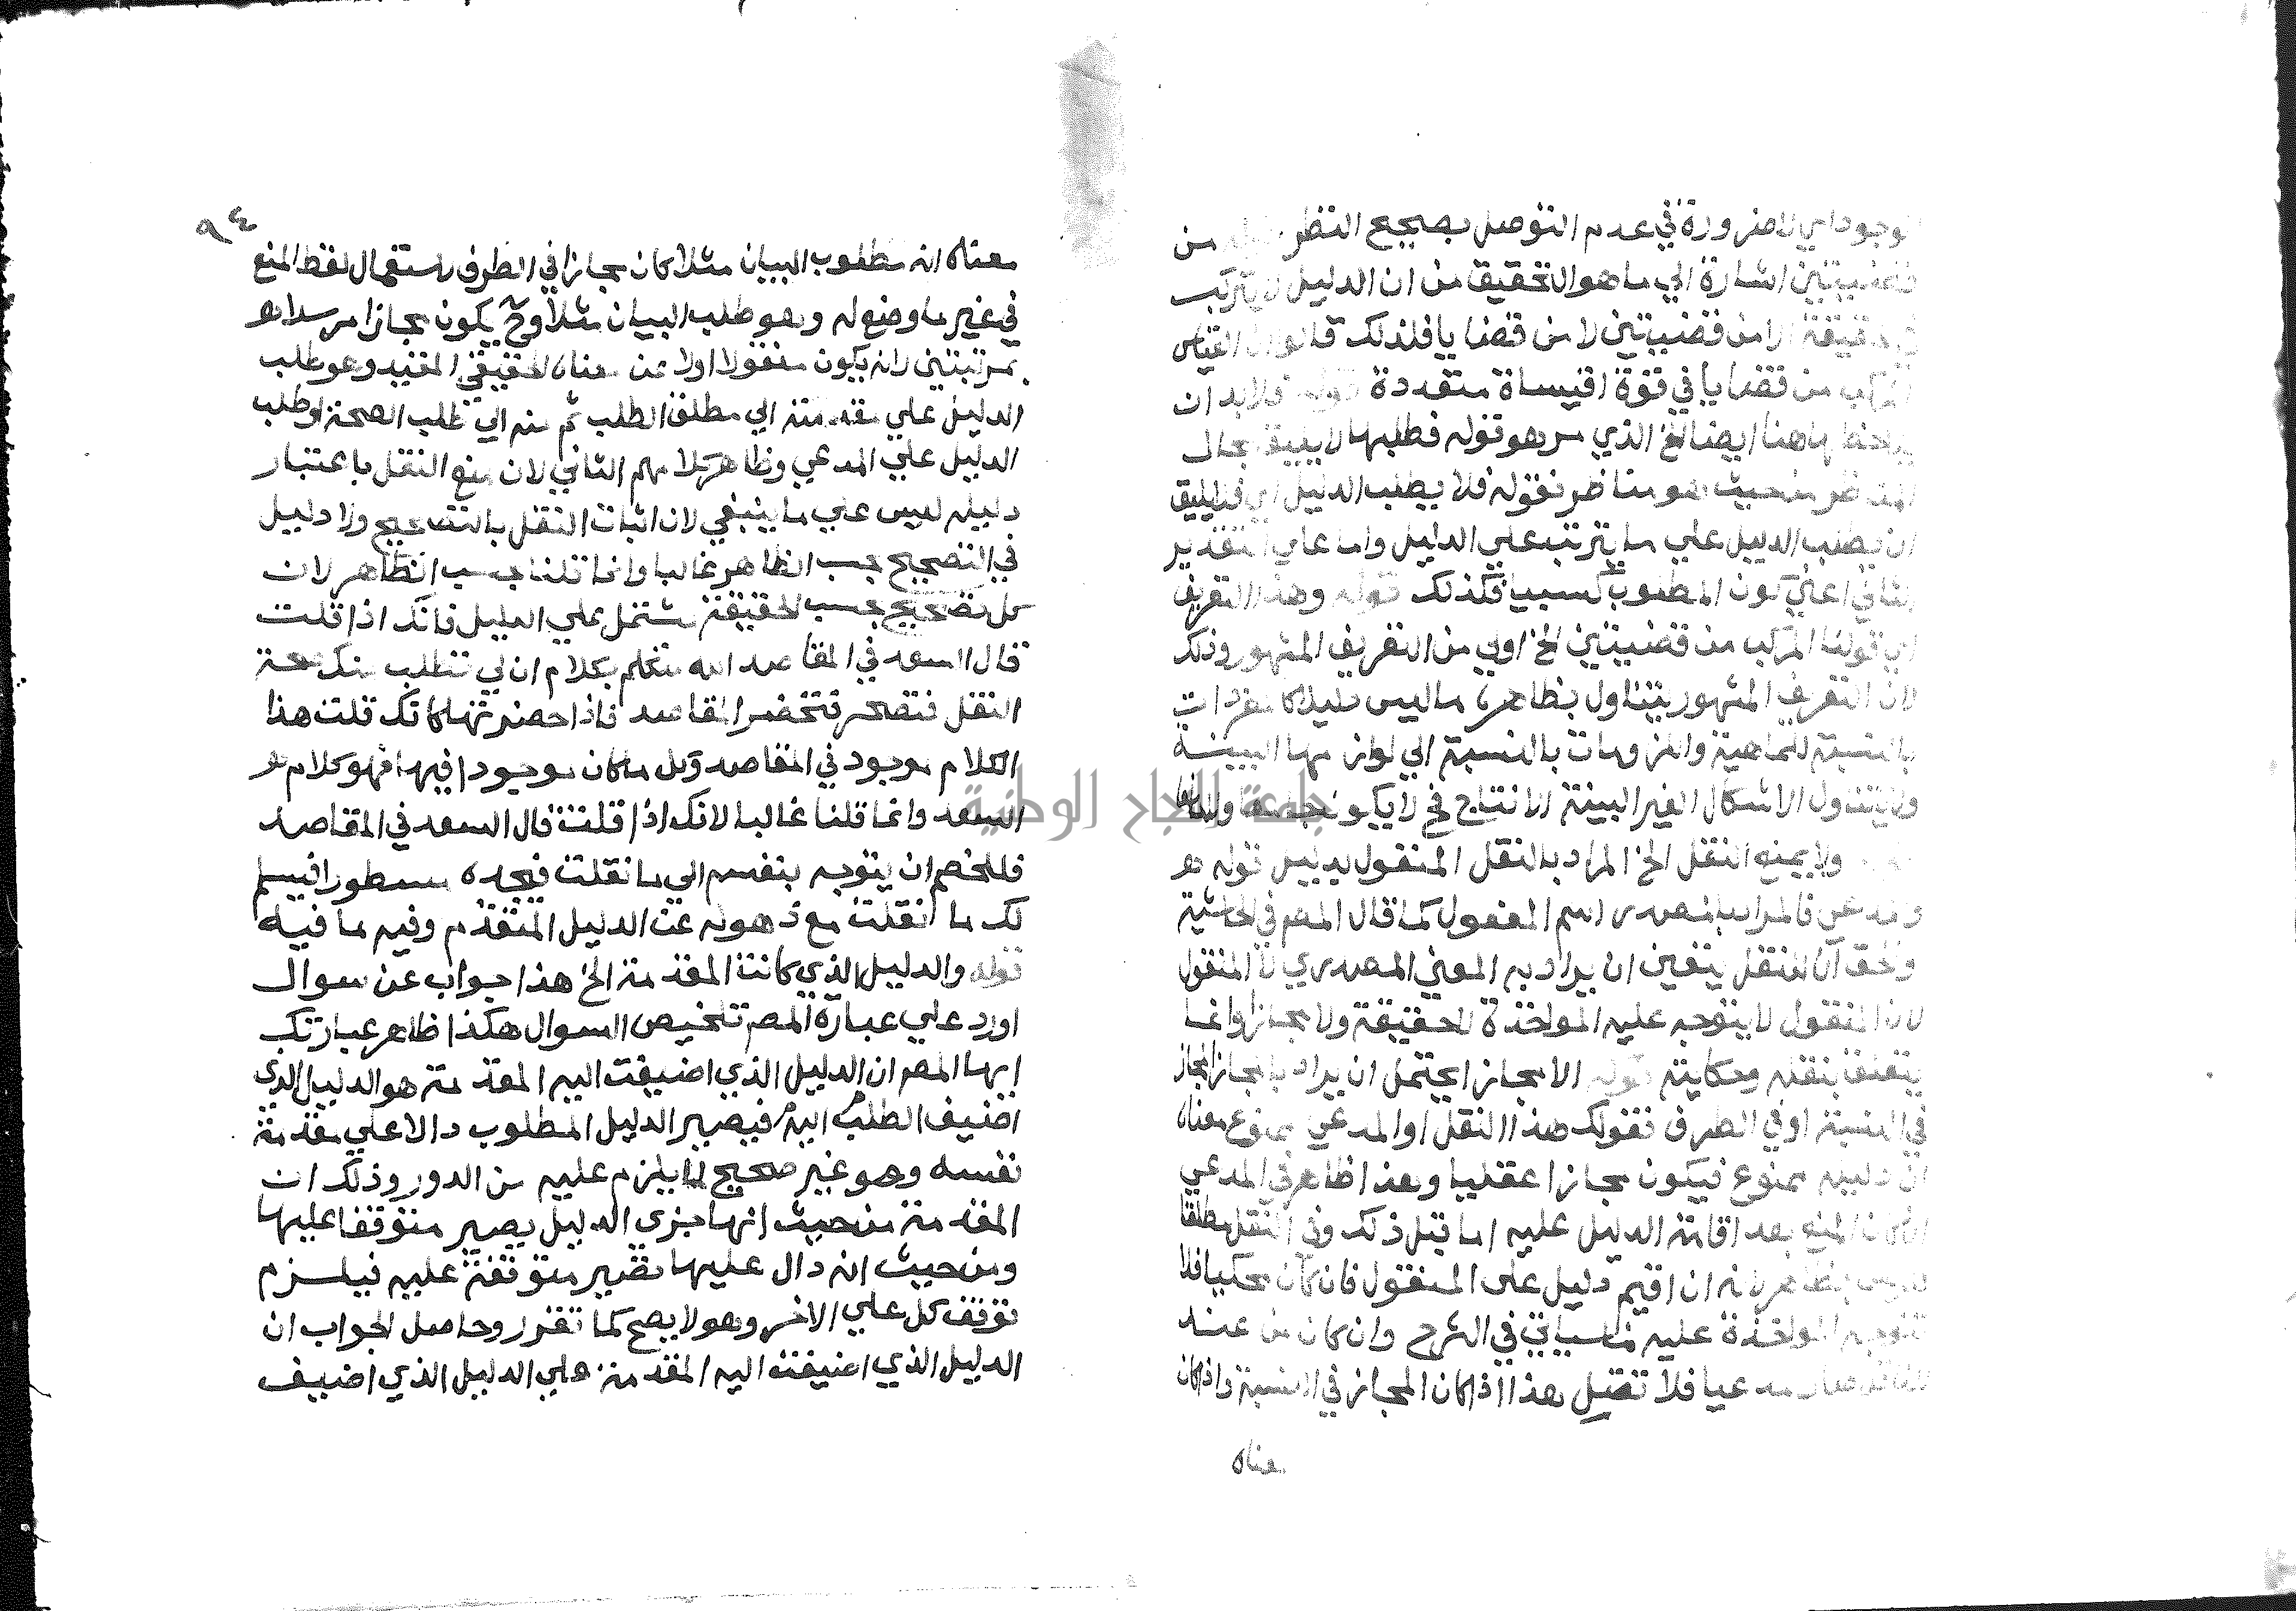 الوجود اي لا ضرورة في عدم التوصل بصحيح النظر قوله من
قضيتين اشارة الي ما هو التحقيق من ان الدليل لا يتركب
في الحقيقة الا من قضيتين لا من قضايا فلذلك قالوا ان القياس
المركب من قضايا في قوة اقيساة متعددة قوله فلا بد ان
يلاحظ ها هنا ايضا الخ الذي مر هو قوله فطلبها لا يليق بحال
المناظر من حيث هو مناظر نقوله فلا يطلب الدليل اي فلا يليق
ان يطلب الدليل علي ما يترتب علي الدليل واما علي التقدير
الثاني اعني كون المطلوب كسبيا فكذلك قوله وهذا التعريف
اي قولنا المركب من قضيتين الخ اولي من التعريف المشهور وذلك
لان التعريف المشهور يتناول بظاهره ما ليس دليلا كالمفردات
بالنسبة للماهية والملزومات بالنسبة الي لوازمها البينة
ولا يتناول الاشكال الغير البينة الانتاج فح لا يكون جامعا ولا مانعا
ولا يمنع النقل الخ المراد بالنقل المنقول بدليل قوله
فالمراد بالمصدر اسم المفعول كما قال المصم في الحاشية
والحق ان النقل يتعين ان يراد به المعني المصدري لا المنقول
لان المنقول لا يتوجه عليه المواخذة لا حقيقة ولا مجازا وانما
يتعلق بنقله وحكايته قوله الا مجازا يحتمل ان يراد بالمجاز المجاز
في النسبة او في الطرف نقولك هذا النقل او المدعي ممنوع معناه
ان دليله ممنوع فيكون مجازا عقليا وهذا ظاهر في المدعي
ان كان المنع بعد اقامة الدليل عليه اما قبل ذلك وفي النقل مطلقا
فليس بظاهر لانه ان اقيم دليل علي المنقول فان كان محكيا فلا
تتوجه المواخذة عليه كما سياتي في الشرح وان كان من عند
الناقل صار مدعيا فلا نقل هذا اذا كان المجاز في النسبة واذا كان
معناه
٩٤
معناه انه مطلوب البيان مثلا كان مجازا في الطرف باستعمال لفظ المنع
في غير ما وضع له وهو طلب البيان مثلا وح يكون مجازا مرسلا
بمرتبتين لانه يكون منقولا اولا عن معناه الحقيقي المقيد وهو طلب
الدليل علي مقدمته الي مطلق الطلب ثم منه الي طلب الصحة او طلب
الدليل علي المدعي وظاهر كلامهم الثاني لان منع النقل باعتبار
دليله ليس علي ما ينبغي لان اثبات النقل بالتصحيح ولا دليل
في التصحيح بحسب الظاهر غالبا وانما قلنا بحسب الظاهر لان
كل تصحيح بحسب الحقيقة مشتمل علي الدليل فانك اذا قلت
قال السعد في المقاصد الله متكلم بكلام ازلي تطلب منك صحة
النقل فتصححه فتحضر المقاصد فاذا حضرتها كانك قلت هذا
الكلام موجود في المقاصد وكل ما كان موجودا فيها فهو كلام
السعد وانما قلنا غالبا لانك اذا قلت قال السعد في المقاصد
فللخصم ان يتوجه بنفسه الي ما نقلت فيجده مسطورا فيسلم
لك ما نقلت مع ذهوله عن الدليل المتقدم وفيه ما فيه
قوله والدليل الذي كانت المقدمة الخ هذا جواب عن سوال
اورد علي عبارة المصم تلخيص السوال هكذا ظاهر عبارتك
ايها المصم ان الدليل الذي اضيفت اليه المقدمة هو الدليل الذي
اضيف الطلب اليه فيصير الدليل المطلوب دالا علي مقدمة
نفسه وهو غير صحيح لما يلزم عليه من الدور وذلك ان
المقدمة من حيث انها جزي الدليل يصير متوقفا عليها
ومن حيث انه دال عليها تصير متوقفة عليه فيلزم
توقف كل علي الاخر وهو لا يصح كما تقرر وحاصل الجواب ان
الدليل الذي اضيفت اليه المقدمة علي الدليل الذي اضيف
جامعة النجاح الوطنية